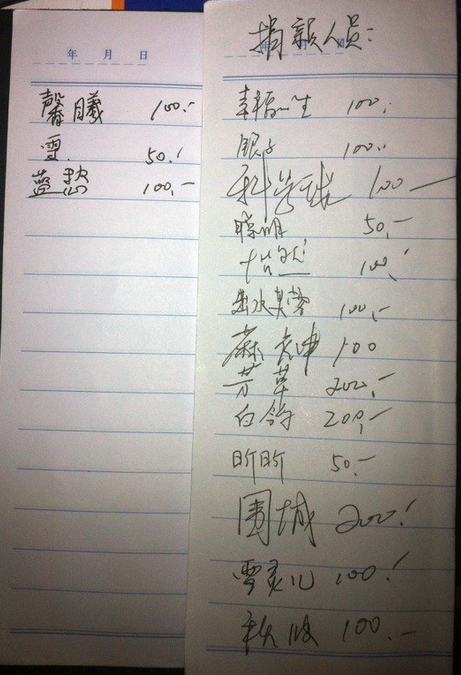 年 月 日
馨曦 100.-
雪 50.-
蓝 100.-
捐款人员:
幸福一生 100.-
银子 100.-
100-
聪明 50.-
怡然 100.-
出水芙蓉 100.-
麻 100
芳草 200.-
白鸽 200.-
昕昕 50.-
围城 200.-
雪灵儿 100.-
秋波 100.-